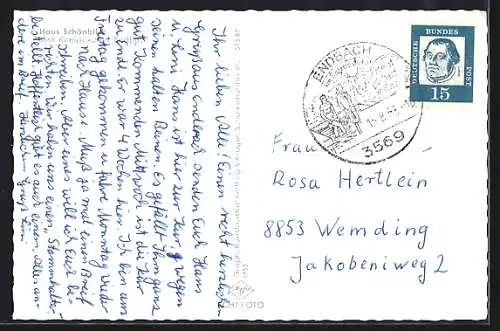 Haus Schönblick
Ihr lieben Alle! Einen recht herzlichen
Gruß aus Endbach senden Euch Hans
u. Loni. Hans ist hier zur Kur, wegen
seinen kalten Beinen. Es gefällt ihm ganz
gut. Kommenden Mittwoch ist die Kur
zu Ende. Er war 4 Wochen hier. Ich bin am
Freitag gekommen u. fahre Montag wieder
nach Hause. Muß ja mal einen Brief
schreiben. Aber eines will ich Euch be-
richten. Wir haben uns einen Stammhalter
bestellt. Hoffentlich gibt es auch einen. Alles an-
dere im Brief. Herzlichen Gruß Loni
ENDBACH
3569
DEUTSCHE BUNDESPOST
15
Frau
Rosa Hertlein
8853 Wemding
Jakobeniweg 2
ECHT FOTO